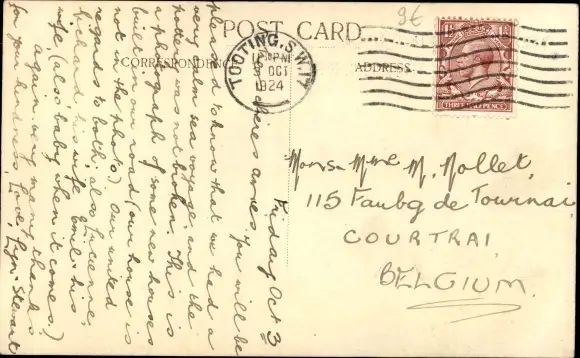 POST CARD
CORRESPONDENCE
ADDRESS.
TOOTING. S.W.17
3 OCT
1924
THREE HALF PENCE
9€
Monsr Mme M. Mollet,
115 Faubg de Tournai
COURTRAI
BELGIUM.
Friday Oct 3
You will be
pleased to know that we had a
very calm sea voyage, and the
pottery was not broken. This is
a photograph of some new houses
built in our road (our house is
not in the photo.) Our united
regards to both; also Lucienne,
Richard, his wife, Emile & his
wife, (also baby when it comes.)
Again very many thanks
for your kindness, Love, Stewart